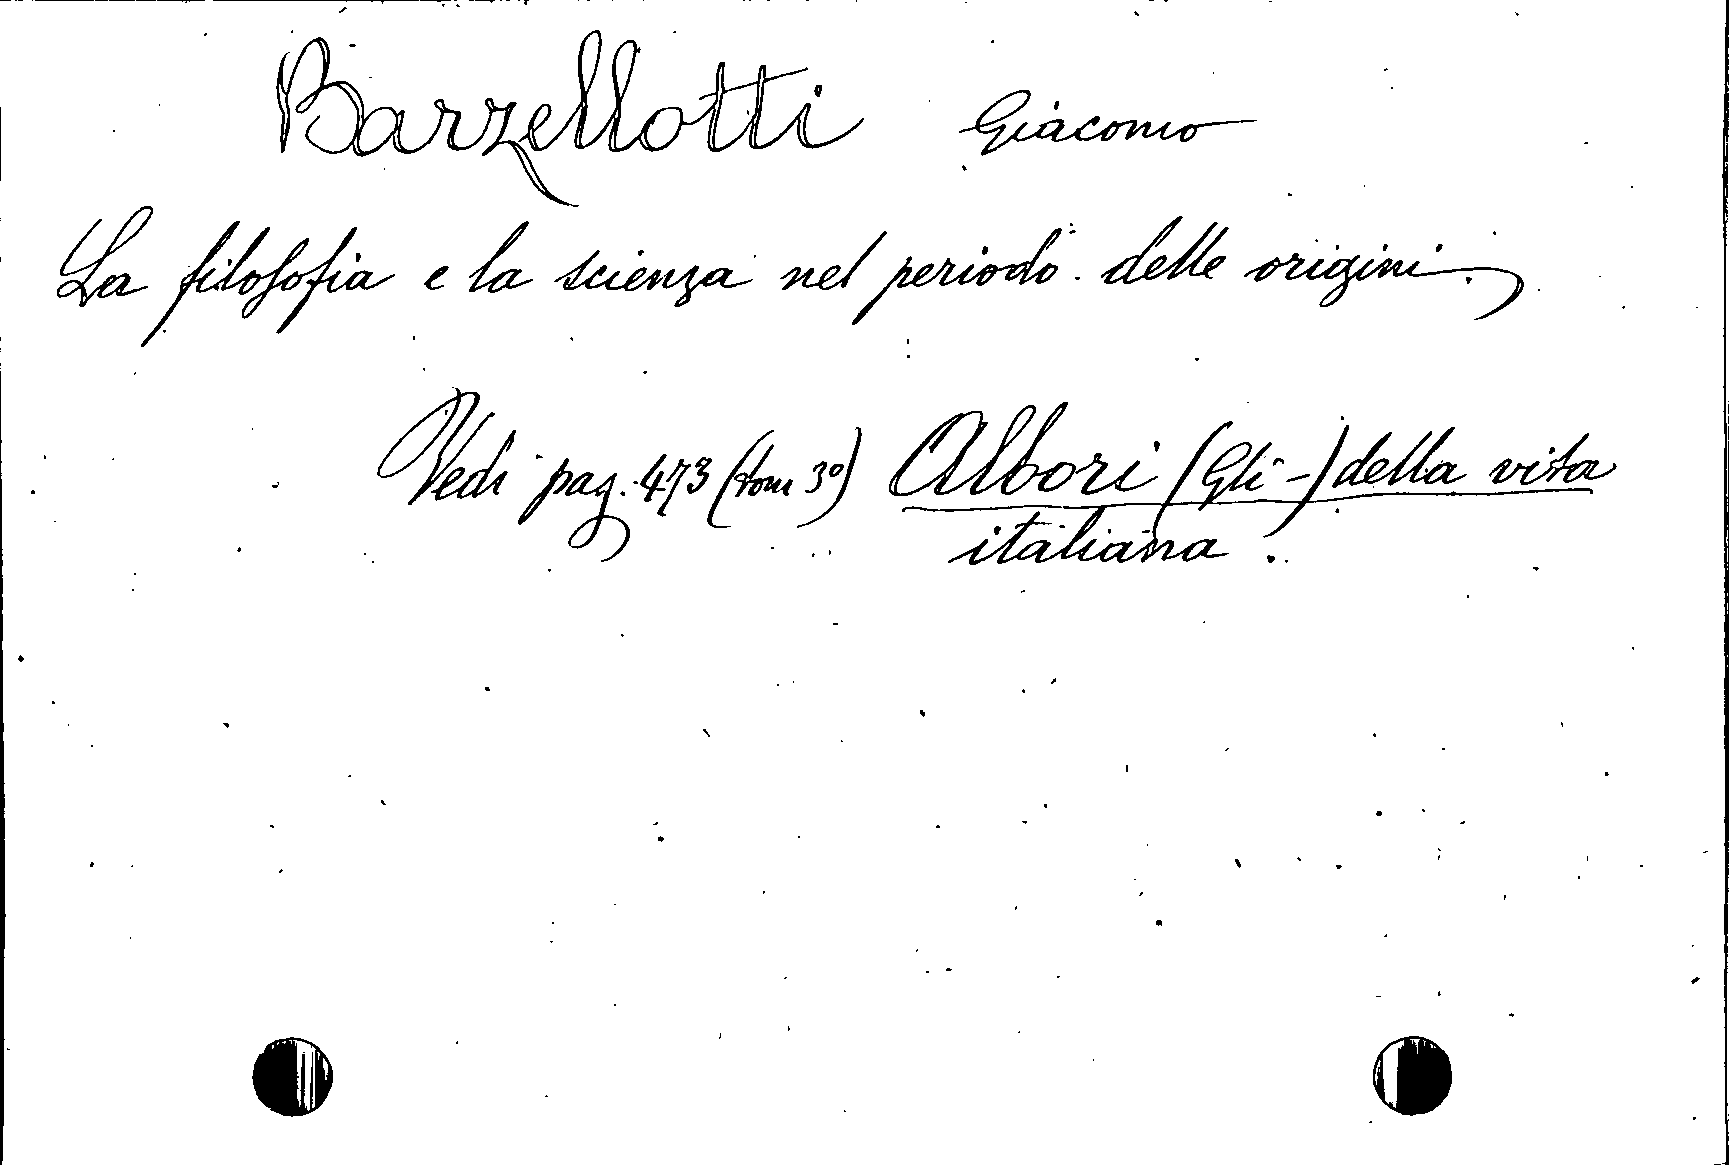 Barzellotti Giacomo
La filosofia e la scienza nel periodo delle origini.
Vedi pag. 473 (tom 3º) Albori (Gli -) della vita
italiana.